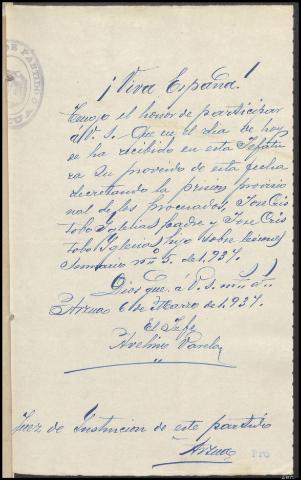 ¡Viva España!
Tengo el honor de participar
á V. S. Que en el dia de hoy
se ha recibido en esta Jefatu
ra su proveido de esta fecha
decretando la prision provisio
nal de los procesados, Jose Cris
tobo Iglesias padre y Jose Cris
tobo Iglesias hijo sobre lesiones
Sumario nº 5. de 1.937.
Dios gue. á V. S. ms. as.
Arzua 6 de Marzo de 1.937.
El Jefe
Avelino Varela
Juez de Instrucion de este partido
Arzua